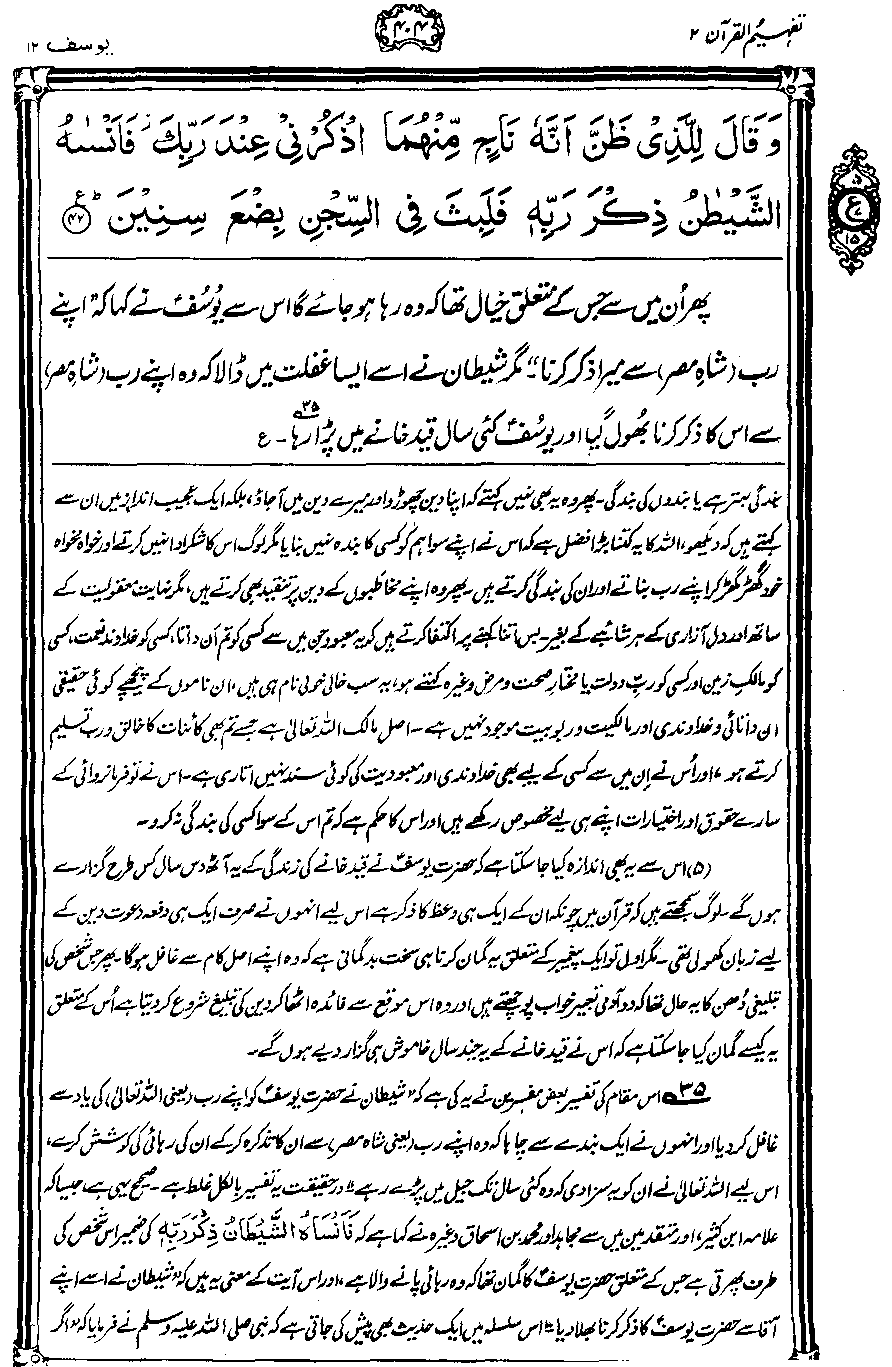 تفہیم القرآن ۲
۴۰۴
یوسف ۱۲
وَقَالَ لِلَّذِىْ ظَنَّ اَنَّهٗ نَاجٍ مِّنْهُمَا اذْكُرْنِىْ عِنْدَ رَبِّكَ ۡ فَاَنْسٰىهُ
الشَّيْطٰنُ ذِكْرَ رَبِّهٖ فَلَبِثَ فِى السِّجْنِ بِضْعَ سِنِيْنَ ؕ ﴿۴۲﴾ ع
۵
ع
۱۵
پھر اُن میں سے جس کے متعلق خیال تھا کہ وہ رہا ہو جائے گا اس سے یُوسُفؑ نے کہا کہ ”اپنے
رب (شاہِ مصر) سے میرا ذکر کرنا“۔ مگر شیطان نے اسے ایسا غفلت میں ڈالا کہ وہ اپنے رب (شاہِ مصر)
سے اس کا ذکر کرنا بھُول گیا اور یوسُفؑ کئی سال قید خانے میں پڑا رہا۳۵۔ ع
بندگی بہتر ہے یا بندوں کی بندگی۔ پھر وہ یہ بھی نہیں کہتے کہ اپنا دین چھوڑو اور میرے دین میں آجاؤ، بلکہ ایک عجیب انداز میں ان سے
کہتے ہیں کہ دیکھو، اللہ کا یہ کتنا بڑا فضل ہے کہ اس نے اپنے سوا ہم کو کسی کا بندہ نہیں بنایا مگر لوگ اس کا شکر ادا نہیں کرتے اور خواہ مخواہ
خود گھڑ گھڑ کر اپنے رب بناتے اور ان کی بندگی کرتے ہیں۔ پھر وہ اپنے مخاطبوں کے دین پر تنقید بھی کرتے ہیں، مگر نہایت معقولیت کے
ساتھ اور دل آزاری کے ہر شائبے کے بغیر۔ بس اتنا کہنے پر اکتفا کرتے ہیں کہ یہ معبود جن میں سے کسی کو تم اَن داتا، کسی کو خداوندِ نعمت، کسی
کو مالکِ زمین اور کسی کو ربِّ دولت یا مختارِ صحت و مرض وغیرہ کہتے ہو، یہ سب خالی خولی نام ہی ہیں، ان ناموں کے پیچھے کوئی حقیقی
ان داتائی و خداوندی اور مالکیت و ربوبیت موجود نہیں ہے۔ اصل مالک اللہ تعالیٰ ہے جسے تم بھی کائنات کا خالق و رب تسلیم
کرتے ہو، اور اُس نے اِن میں سے کسی کے لیے بھی خداوندی اور معبودیت کی کوئی سند نہیں اتاری ہے۔ اس نے تو فرمانروائی کے
سارے حقوق اور اختیارات اپنے ہی لیے مخصوص رکھے ہیں اور اس کا حکم ہے کہ تم اس کے سوا کسی کی بندگی نہ کرو۔
(۵) اس سے یہ بھی اندازہ کیا جا سکتا ہے کہ حضرت یوسفؑ نے قید خانے کی زندگی کے یہ آٹھ دس سال کس طرح گزارے
ہوں گے۔ لوگ سمجھتے ہیں کہ قرآن میں چونکہ ان کے ایک ہی وعظ کا ذکر ہے اس لیے انھوں نے صرف ایک ہی دفعہ دعوت دین کے
لیے زبان کھولی تھی۔ مگر اول تو ایک پیغمبر کے متعلق یہ گمان کرنا ہی سخت بدگمانی ہے کہ وہ اپنے اصل کام سے غافل ہوگا۔ پھر جس شخص کی
تبلیغی دُھن کا یہ حال تھا کہ دو آدمی تعبیرِ خواب پوچھتے ہیں اور وہ اس موقع سے فائدہ اٹھا کر دین کی تبلیغ شروع کر دیتا ہے اُس کے متعلق
یہ کیسے گمان کیا جا سکتا ہے کہ اس نے قید خانے کے یہ چند سال خاموش ہی گزار دیے ہوں گے۔
۳۵ اس مقام کی تفسیر بعض مفسرین نے یہ کی ہے کہ ”شیطان نے حضرت یوسفؑ کو اپنے رب (یعنی اللہ تعالیٰ) کی یاد سے
غافل کر دیا اور انھوں نے ایک بندے سے چاہا کہ وہ اپنے رب (یعنی شاہ مصر) سے ان کا تذکرہ کر کے ان کی رہائی کی کوشش کرے،
اس لیے اللہ تعالیٰ نے ان کو یہ سزا دی کہ وہ کئی سال تک جیل میں پڑے رہے“۔ در حقیقت یہ تفسیر بالکل غلط ہے۔ صحیح یہی ہے، جیسا کہ
علامہ ابن کثیر، اور متقدمین میں سے مجاہد اور محمد بن اسحاق وغیرہ نے کہا ہے کہ فَاَنْسَاهُ الشَّيْطَانُ ذِكْرَ رَبِّهٖ کی ضمیر اس شخص کی
طرف پھرتی ہے جس کے متعلق حضرت یوسفؑ کا گمان تھا کہ وہ رہائی پانے والا ہے، اور اس آیت کے معنی یہ ہیں کہ ”شیطان نے اسے اپنے
آقا سے حضرت یوسفؑ کا ذکر کرنا بھلا دیا“۔ اس سلسلہ میں ایک حدیث بھی پیش کی جاتی ہے کہ نبی صلی اللہ علیہ وسلم نے فرمایا کہ ”اگر